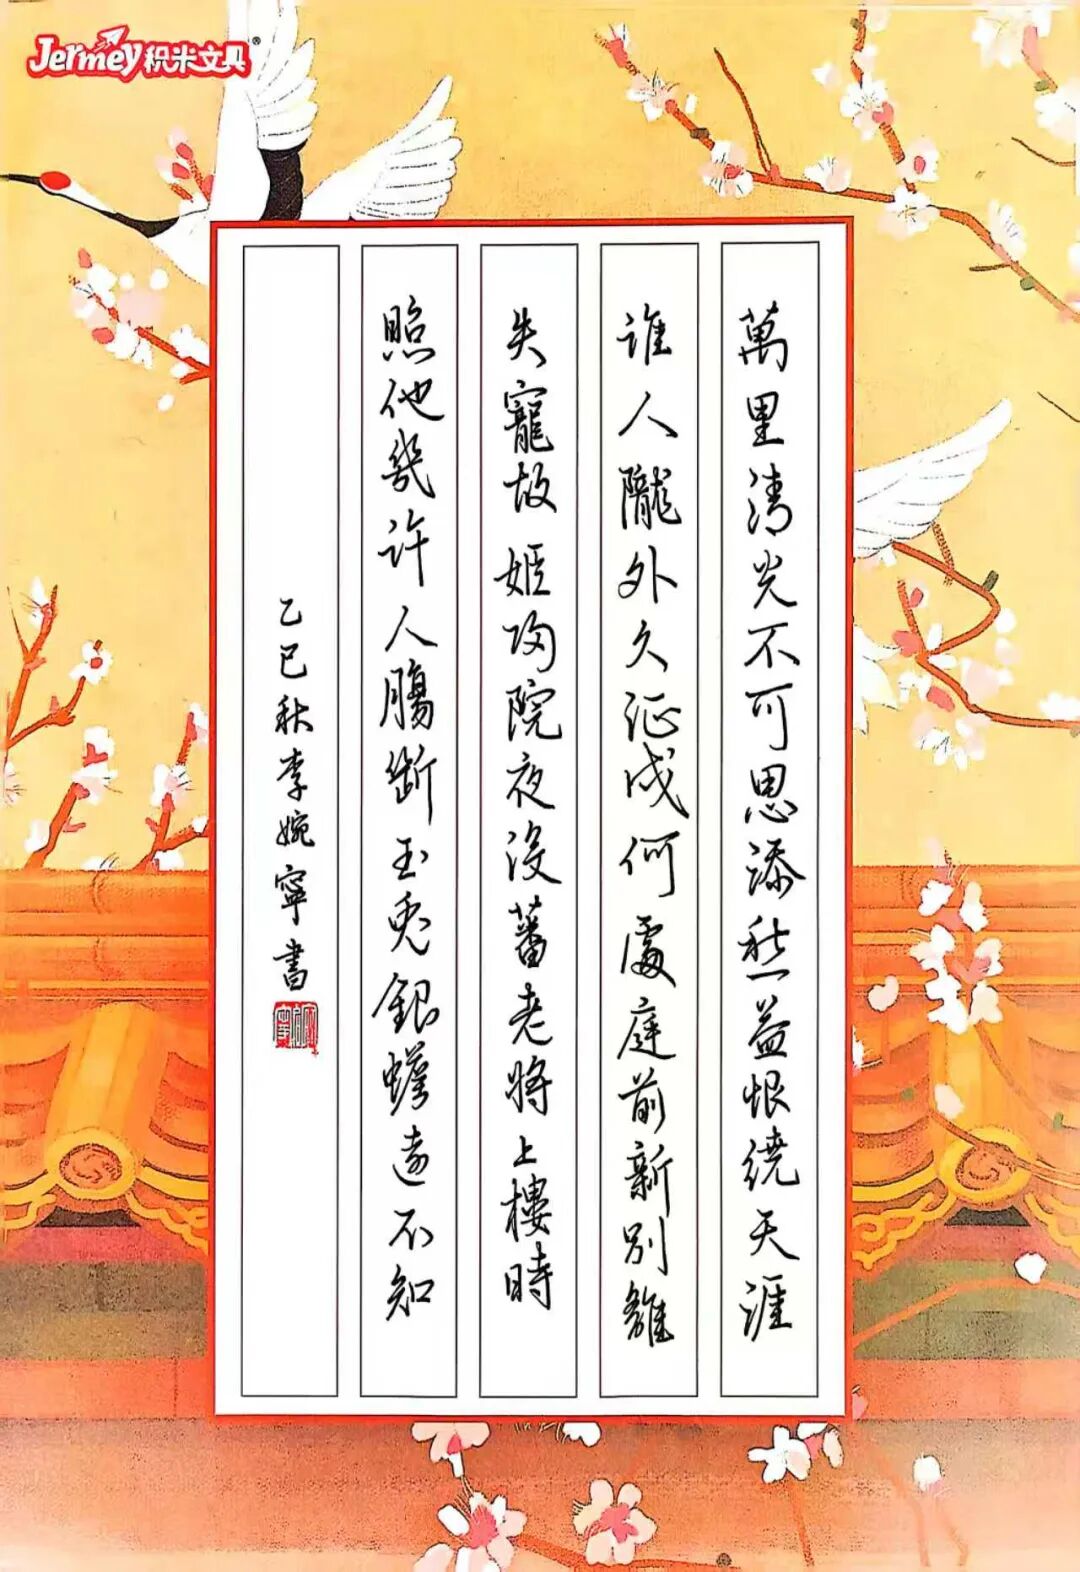 Jermey积米文具®
萬里清光不可思添愁益恨繞天涯
誰人隴外久征戍何處庭前新別離
失寵故姬歸院夜沒蕃老將上樓時
照他幾許人腸斷玉兔銀蟾遠不知
乙巳秋李婉寧書